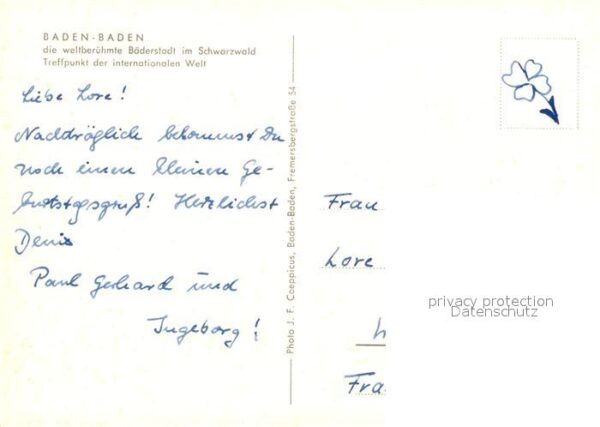 BADEN-BADEN
die weltberühmte Bäderstadt im Schwarzwald
Treffpunkt der internationalen Welt
Liebe Lore!
Nachträglich bekommst Du
noch einen kleinen Ge-
burtstagsgruß! Herzlichst
Paul Gerhard und
Ingeborg!
Photo J. F. Coeppicus, Baden-Baden, Fremersbergstraße 54
Frau
Lore
Fra
privacy protection
Datenschutz